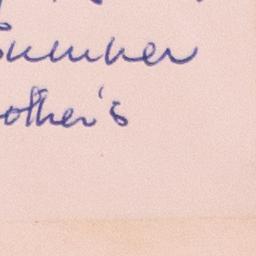 Summer
other's